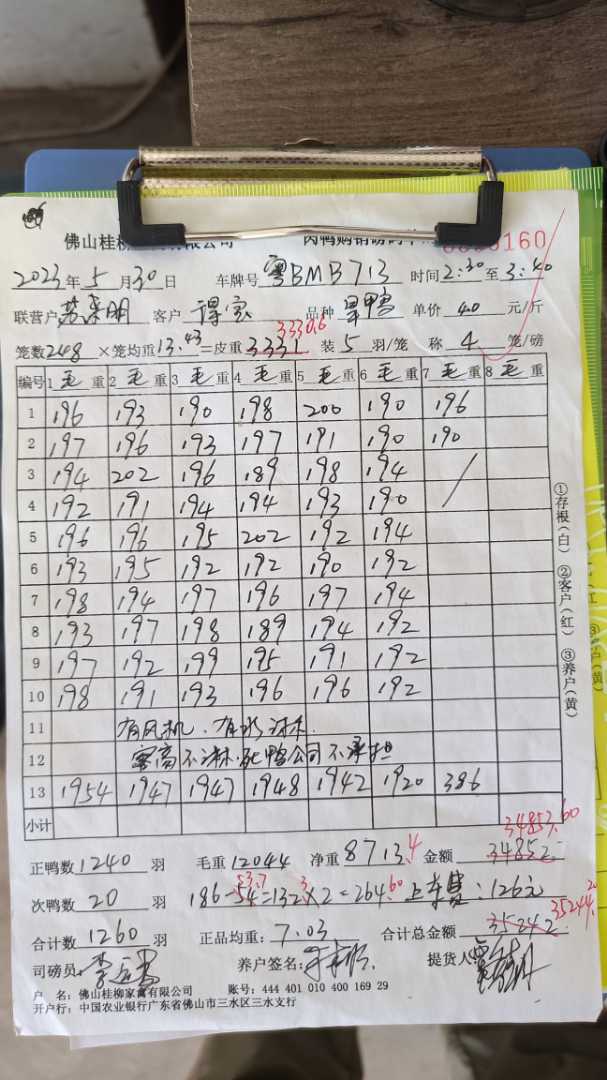 佛山桂柳 有限公司 肉鸭购销磅码单 160
2023年5月30日 车牌号 粤BMB713 时间2:30至3:40
联营户 客户 得宝 品种 旱鸭 单价 4.0 元/斤
笼数248 ×笼均重13.43=皮重 3331 3330.6 装 5 羽/笼 称 4 笼/磅
编号 1毛重 2毛重 3毛重 4毛重 5毛重 6毛重 7毛重 8毛重
1 196 193 190 198 200 190 196
2 197 196 193 197 191 190 190
3 194 202 196 189 198 194
4 192 191 194 194 193 190
5 196 196 195 202 192 194
6 193 195 192 192 190 192
7 198 194 197 196 197 194
8 193 197 198 189 194 192
9 197 192 199 195 191 192
10 198 191 193 196 196 192
11 有风机、有水淋
12 高不淋、死鸭公司不承担
13 1954 1947 1947 1948 1942 1920 386
小计
①存根(白) ②客户(红) ③养户(黄)
34853.60
正鸭数1240羽 毛重12044 净重8713.4 金额 34852
次鸭数 20 羽 186-54=132×2=264 53.7 .3 .60 上车费:126元
35244.20
合计数1260羽 正品均重:7.03 合计总金额 35242
司磅员: 养户签名: 提货人
户 名:佛山桂柳家禽有限公司 账号:444 401 010 400 169 29
开户行:中国农业银行广东省佛山市三水区三水支行